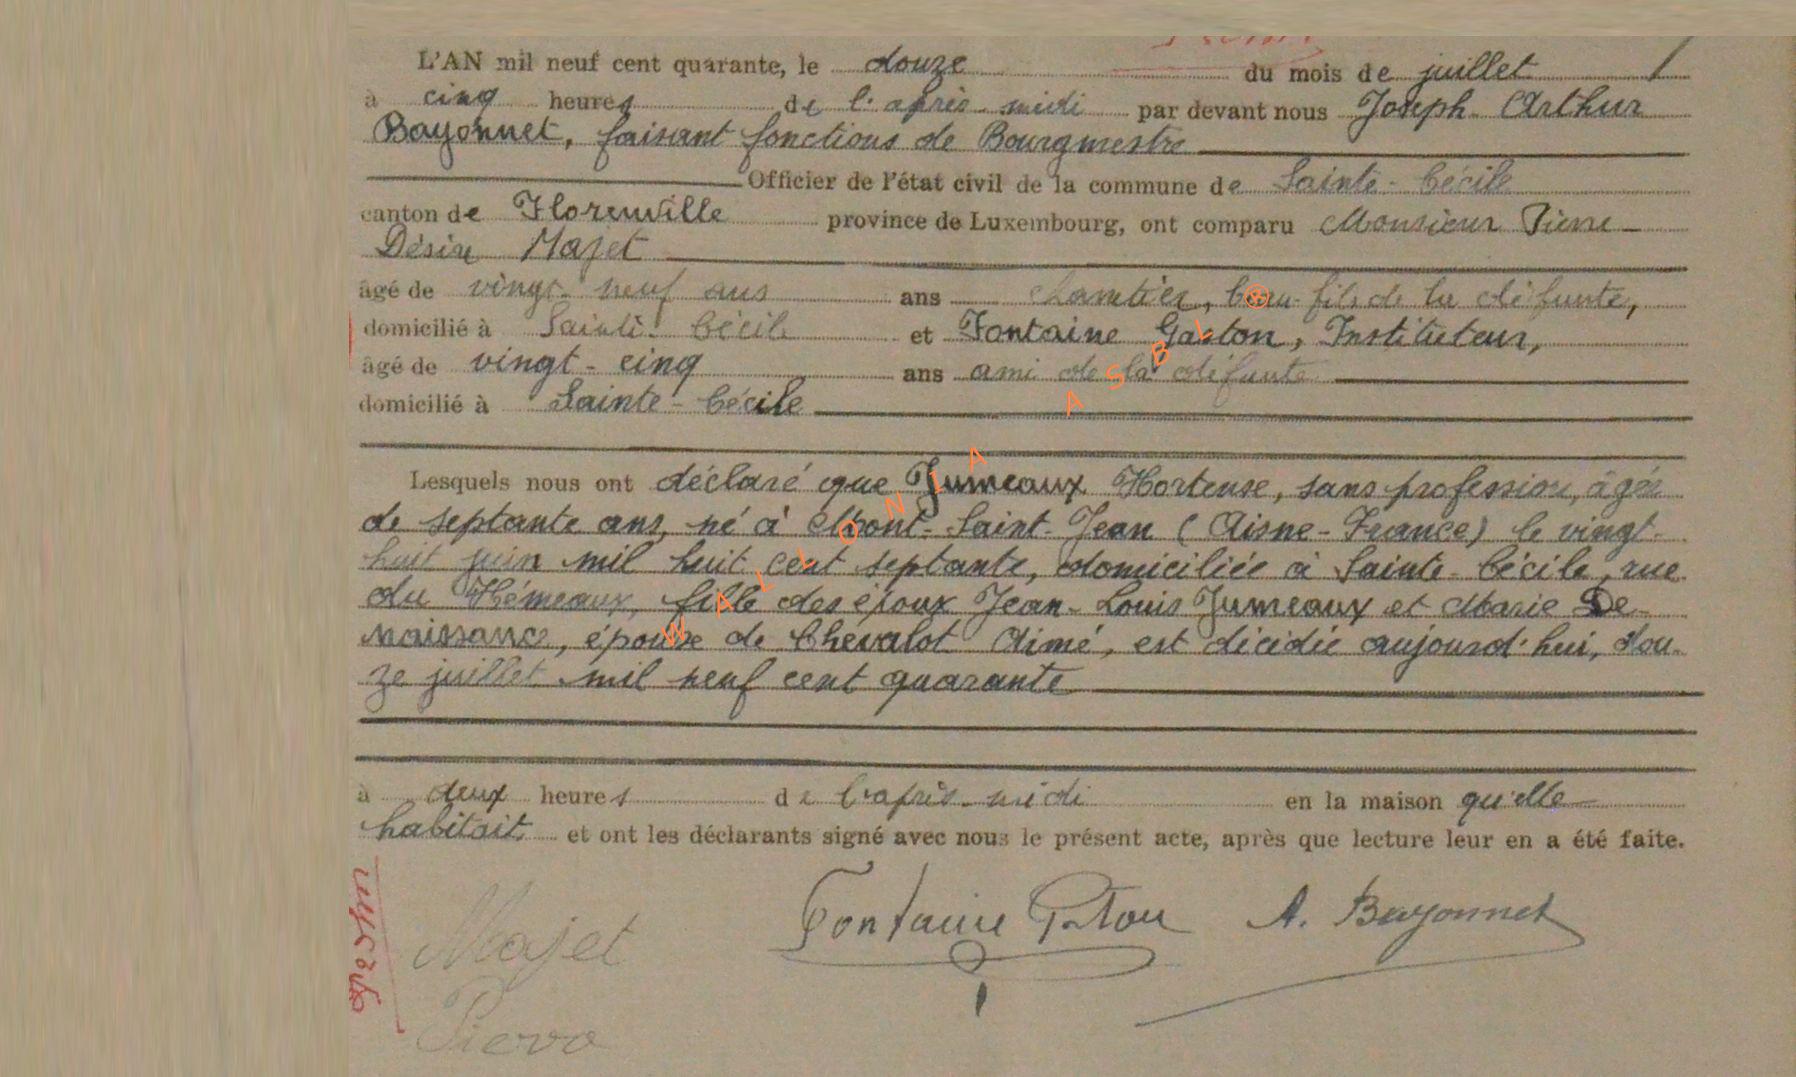 L'AN mil neuf cent quarante, le douze du mois de juillet
à cinq heures de l'après-midi par devant nous Joseph Arthur
Bayonnet, faisant fonctions de Bourgmestre
Officier de l'état civil de la commune de Sainte-Cécile
canton de Florenville province de Luxembourg, ont comparu Monsieur Pierre
Désiré Majet
âgé de vingt-neuf ans ans chantier, beau-fils de la défunte,
domicilié à Sainte-Cécile et Fontaine Gaston, Instituteur,
âgé de vingt-cinq ans ami de la défunte
domicilié à Sainte-Cécile
Lesquels nous ont déclaré que Jumeaux Hortense, sans profession, âgée
de septante ans, né à Mont-Saint-Jean (Aisne-France) le vingt-
huit juin mil huit cent septante, domiciliée à Sainte-Cécile, rue
du Héméaux, fille des époux Jean-Louis Jumeaux et Marie De-
naissance, épouse de Chevalot Aimé, est décédée aujourd'hui, dou-
ze juillet mil neuf cent quarante
à deux heures de l'après-midi en la maison qu'elle
habitait et ont les déclarants signé avec nous le présent acte, après que lecture leur en a été faite.
Majet Fontaine Gaston A. Bayonnet
Pierre
WALLONIA ASBL